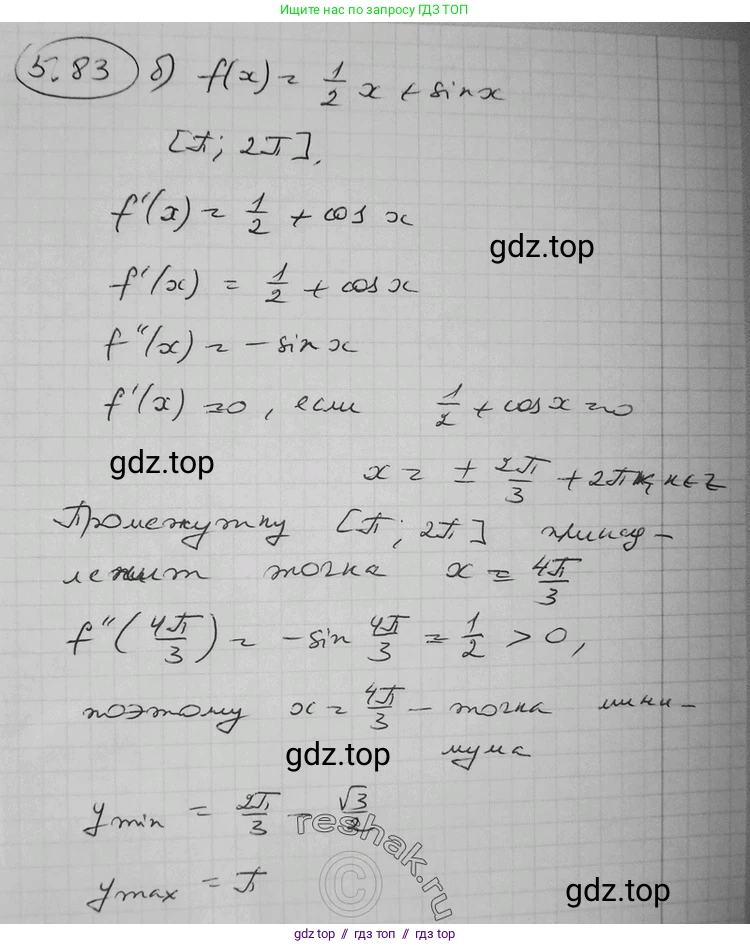 Ищите нас по запросу ГДЗ ТОП
5.83 б) f(x) = 1/2 x + sin x
[π; 2π].
f'(x) = 1/2 + cos x
f'(x) = 1/2 + cos x
gdz.top
f''(x) = - sin x
f'(x) = 0, если 1/2 + cos x = 0
gdz.top
x = ± 2π/3 + 2πk, k ∈ Z
Промежутку [π; 2π] принад-
лежит точка x = 4π/3
f''(4π/3) = - sin 4π/3 = 1/2 > 0,
поэтому x = 4π/3 - точка мини-
мума
gdz.top
y min = 2π/3 - √3/2
reshak.ru
©
y max = π
gdz.top
gdz.top // гдз топ // gdz.top